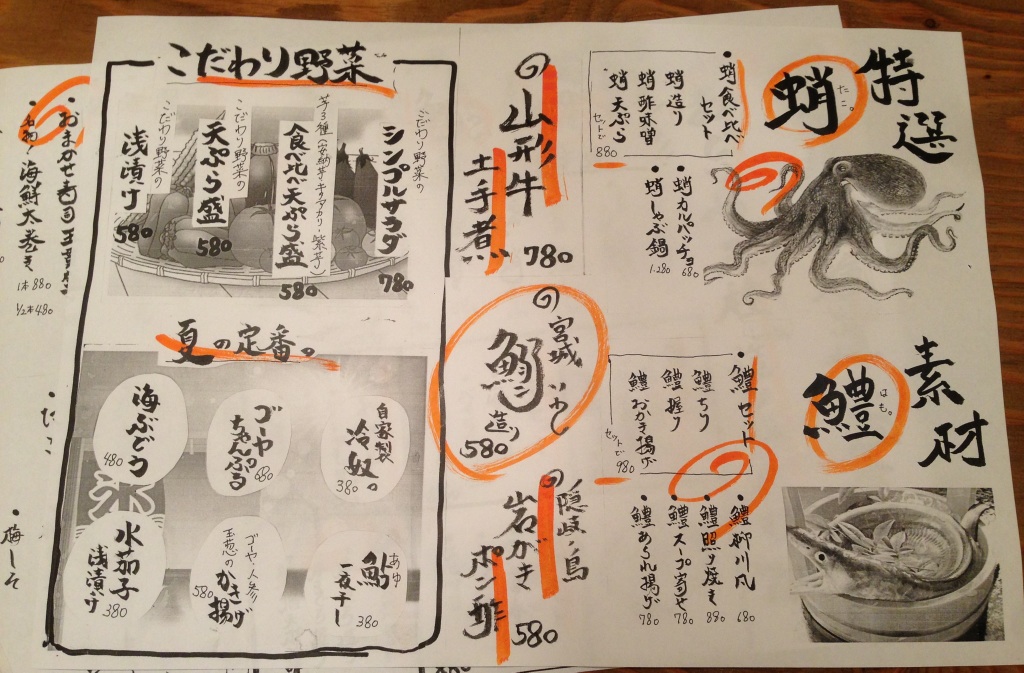 特選
素材
蛸
たこ。
・蛸食べ比べ
セット
蛸造り
蛸酢味噌
蛸天ぷら
セットで
880
・蛸カルパッチョ
680
・蛸しゃぶ鍋
1.280
鱧
はも。
・鱧セット
鱧ちり
鱧握り
鱧おかき揚げ
セットで
980
・鱧柳川風
680
・鱧照り焼き
880
・鱧スープ寄せ
780
・鱧あられ揚げ
780
山形牛
土手煮
780
宮城いわし
造り
580
隠岐ノ島
岩がき
ポン酢
580
こだわり野菜
こだわり野菜の
シンプルサラダ
780
芋3種(安納芋・キタアカリ・紫芋)
食べ比べ天ぷら盛
580
こだわり野菜の
天ぷら盛
580
こだわり野菜の
浅漬け
580
夏の定番。
自家製
冷奴。
380
ゴーヤ
ちゃんぷる
680
海ぶどう
480
鮎
あゆ
一夜干し
380
ゴーヤ・人参
玉葱の
かき揚げ
580
氷
水茄子
浅漬け
380
・おまかせ寿司
・名物!海鮮太巻き
1本880
1/2本480
・梅しそ